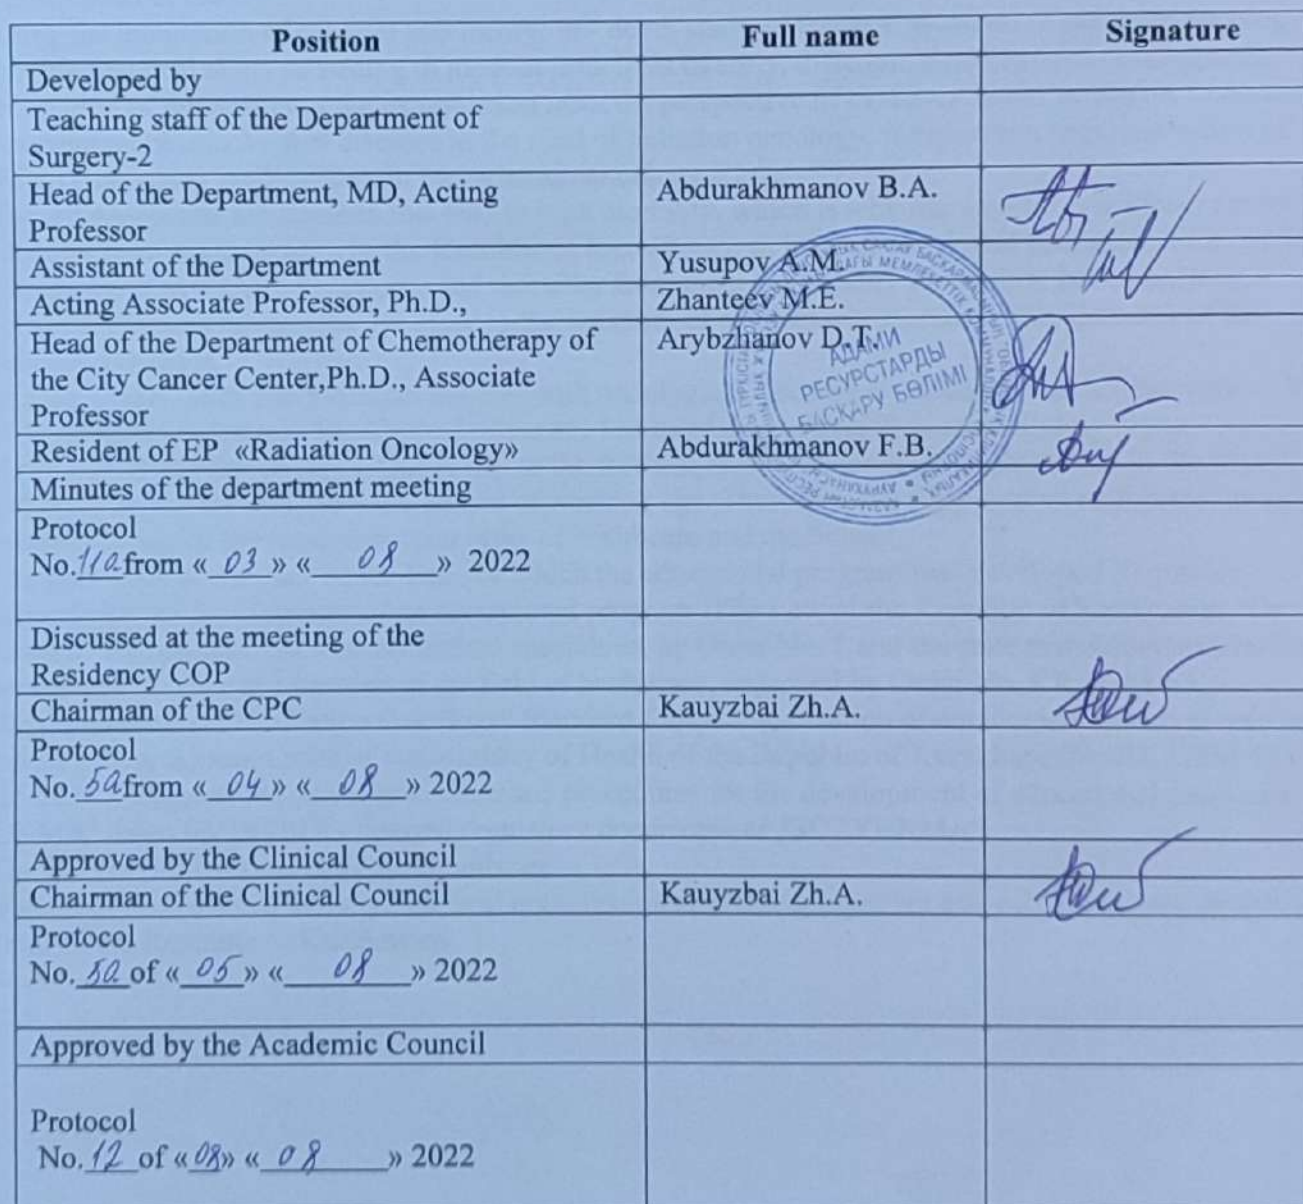 Position Full name Signature
Developed by
Teaching staff of the Department of
Surgery-2
Head of the Department, MD, Acting Abdurakhmanov B.A.
Professor
Assistant of the Department Yusupov A.M.
Acting Associate Professor, Ph.D., Zhanteev M.E.
Head of the Department of Chemotherapy of Arybzhanov D.T.
the City Cancer Center,Ph.D., Associate
Professor
АДАМИ
РЕСУРСТАРДЫ
БАСҚАРУ БӨЛІМІ
Resident of EP «Radiation Oncology» Abdurakhmanov F.B.
Minutes of the department meeting
Protocol
No. 11a from « 03 » « 08 » 2022
Discussed at the meeting of the
Residency COP
Chairman of the CPC Kauyzbai Zh.A.
Protocol
No. 5a from « 04 » « 08 » 2022
Approved by the Clinical Council
Chairman of the Clinical Council Kauyzbai Zh.A.
Protocol
No. 5a of « 05 » « 08 » 2022
Approved by the Academic Council
Protocol
No. 12 of « 08 » « 08 » 2022